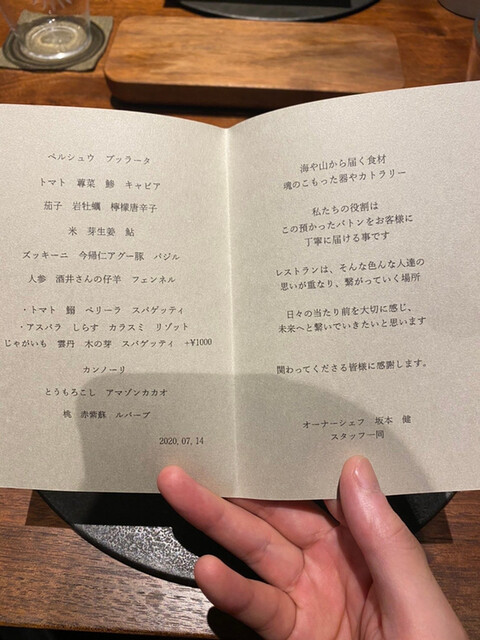 ペルシュウ ブッラータ
トマト 蓴菜 鯵 キャビア
茄子 岩牡蠣 檸檬唐辛子
米 芽生姜 鮎
ズッキーニ 今帰仁アグー豚 バジル
人参 酒井さんの仔羊 フェンネル
・トマト 鰯 ペリーラ スパゲッティ
・アスパラ しらす カラスミ リゾット
じゃがいも 雲丹 木の芽 スパゲッティ +¥1000
カンノーリ
とうもろこし アマゾンカカオ
桃 赤紫蘇 ルバーブ
2020.07.14
海や山から届く食材
魂のこもった器やカトラリー
私たちの役割は
この預かったバトンをお客様に
丁寧に届ける事です
レストランは、そんな色んな人達の
思いが重なり、繋がっていく場所
日々の当たり前を大切に感じ、
未来へと繋いでいきたいと思います
関わってくださる皆様に感謝します。
オーナーシェフ 坂本 健
スタッフ一同